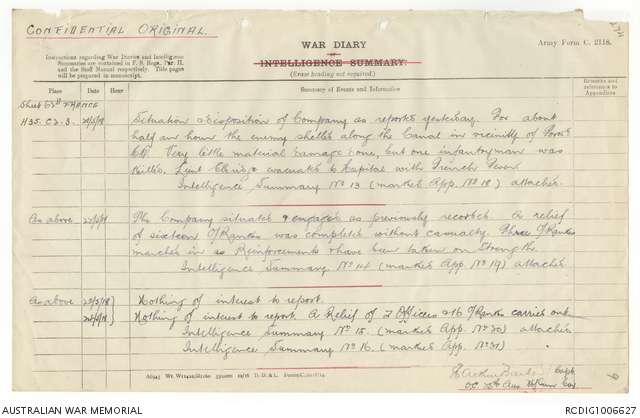 CONFIDENTIAL ORIGINAL.
WAR DIARY
or
INTELLIGENCE SUMMARY.
(Erase heading not required.)
Army Form C. 2118.
Instructions regarding War Diaries and Intelligence
Summaries are contained in F. S. Regs., Part II.
and the Staff Manual respectively. Title pages
will be prepared in manuscript.
Place Date Hour Summary of Events and Information Remarks and references to Appendices
Sheet 62D FRANCE
H35. 21/5/18 Situation & disposition of Company as reported yesterday. For about
half an hour the enemy shelled along the Canal in vicinity of
Very little material damage done, but one infantryman was
killed. Lieut evacuated to hospital with Trench Fever
Intelligence Summary No 13 (marked App. No 18) attached.
As above 22/5/18 The Company situated & engaged as previously recorded. A relief
of sixteen O/Ranks was completed without casualty. Three O/Ranks
marched in as Reinforcements & have been taken on strength
Intelligence Summary No 14 (marked App. No 19) attached
As above 23/5/18 Nothing of interest to report.
24/5/18 Nothing of interest to report. A Relief of 2 Officers & 16 O/Ranks carried out
Intelligence Summary No 15. (marked App. No 20) attached
Intelligence Summary No 16. (marked App. No 21)
Capt
OC.
AUSTRALIAN WAR MEMORIAL
RCDIG1006627